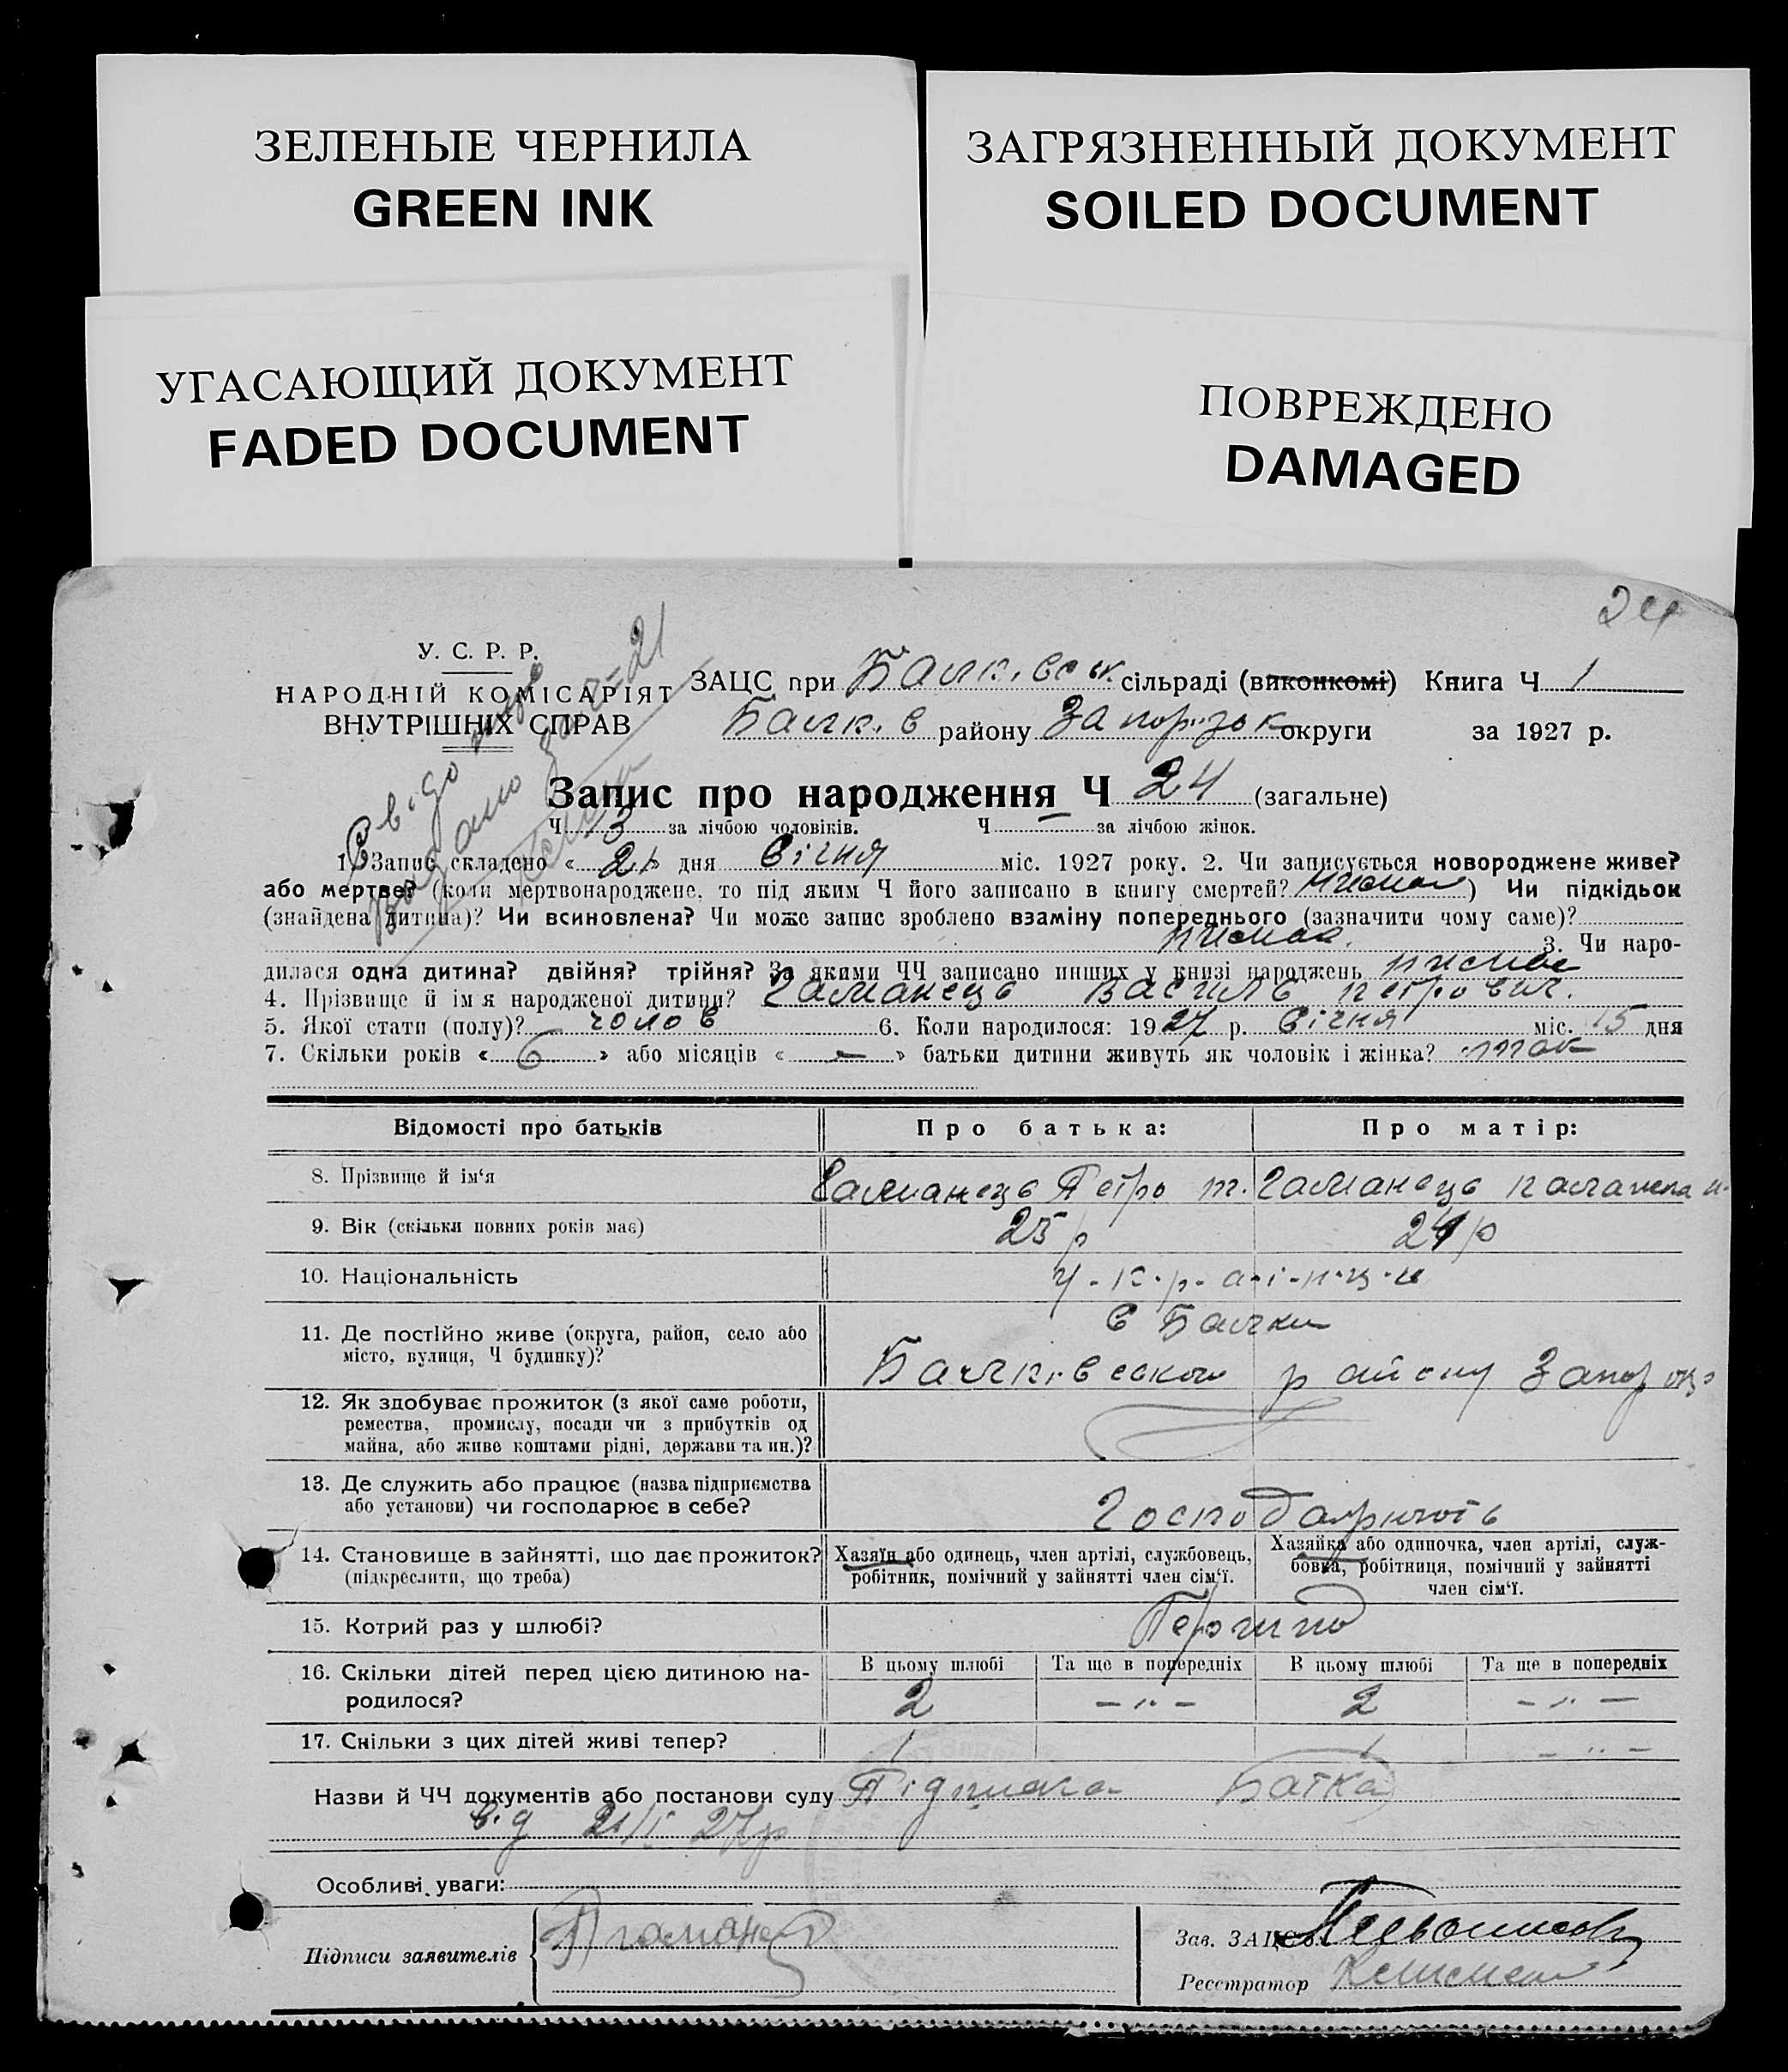 ЗЕЛЕНЫЕ ЧЕРНИЛА
GREEN INK
ЗАГРЯЗНЕННЫЙ ДОКУМЕНТ
SOILED DOCUMENT
УГАСАЮЩИЙ ДОКУМЕНТ
FADED DOCUMENT
ПОВРЕЖДЕНО
DAMAGED
24
У. С. Р. Р.
НАРОДНІЙ КОМІСАРІЯТ
ВНУТРІШНІХ СПРАВ
ЗАЦС при Балк.вськ сільраді (виконкомі) Книга Ч 1
Балк.в району Запорізьк округи за 1927 р.
Запис про народження Ч 24 (загальне)
Ч 13 за лічбою чоловіків. Ч — за лічбою жінок.
1. Запис складено « 21 » дня січня міс. 1927 року. 2. Чи записується новороджене живе?
або мертве? (коли мертвонароджене, то під яким Ч його записано в книгу смертей? ) Чи підкідьок
(знайдена дитина)? Чи всиновлена? Чи може запис зроблено взаміну попереднього (зазначити чому саме)?
3. Чи наро-
дилася одна дитина? двійня? трійня? За якими ЧЧ записано инших у книзі народжень
4. Прізвище й ім'я народженої дитини? Гаманець Василь Петрович.
5. Якої стати (полу)? чолов 6. Коли народилося: 1927 р. січня міс. 15 дня
7. Скільки років « 6 » або місяців « — » батьки дитини живуть як чоловік і жінка? так
Відомості про батьків Про батька: Про матір:
8. Прізвище й ім'я Гаманець Петро т. Гаманець
9. Вік (скільки повних років має) 25 р 24 р
10. Національність у-к-р-а-і-н-ц-и
11. Де постійно живе (округа, район, село або
місто, вулиця, Ч будинку)?
с Балки
района Запор
12. Як здобуває прожиток (з якої саме роботи,
ремества, промислу, посади чи з прибутків од
майна, або живе коштами рідні, держави та ин.)?
13. Де служить або працює (назва підприємства
або установи) чи господарює в себе?
Господарюють
14. Становище в зайнятті, що дає прожиток?
(підкреслити, що треба)
Хазяїн або одинець, член артілі, службовець,
робітник, помічний у зайнятті член сім'ї.
Хазяйка або одиночка, член артілі, служ-
бовка, робітниця, помічний у зайнятті
член сім'ї.
15. Котрий раз у шлюбі?
16. Скільки дітей перед цією дитиною на-
родилося?
В цьому шлюбі Та ще в попередніх В цьому шлюбі Та ще в попередніх
2 — " — 2 — " —
17. Скільки з цих дітей живі тепер? 1 1 — " —
Назви й ЧЧ документів або постанови суду Батка
від 21/I 27р
Особливі уваги:
Підписи заявителів
Зав. ЗАЦС'ом
Реєстратор